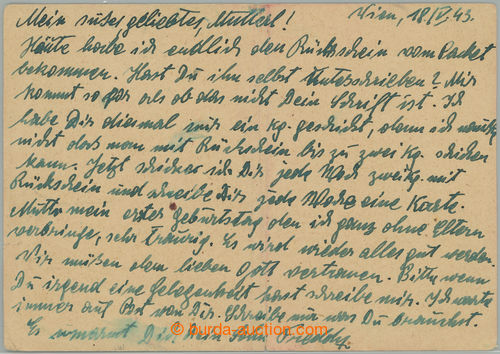 Mein süßes geliebtes Mutterl! Wien, 18/IV. 43.
Heute habe ich endlich den Rückschein vom Packet
bekommen. Hast Du ihn selbst Unterschrieben? Mir
kommt so vor als ob das nicht Dein Schrift ist. Ich
habe Dir diesmal nur ein kg. geschickt, denn ich wußte
nicht das man mit Rückschein bis zu zwei kg. schicken
kann. Jetzt schicke ich Dir jede Woche zwei kg. mit
Rückschein und schreibe Dir jede Woche eine Karte.
Mutti mein erster Geburtstag den ich ganz ohne Eltern
verbringe, sehr traurig. Es wird wieder alles gut werden.
Wir müßen dem lieben Gott vertrauen. Bitte wenn
Du irgend eine Gelegenheit hast schreibe mir. Ich warte
immer auf Post von Dir. Schreibe mir was Du brauchst.
Es umarmt Dich Dein Sohn
burda-auction.com